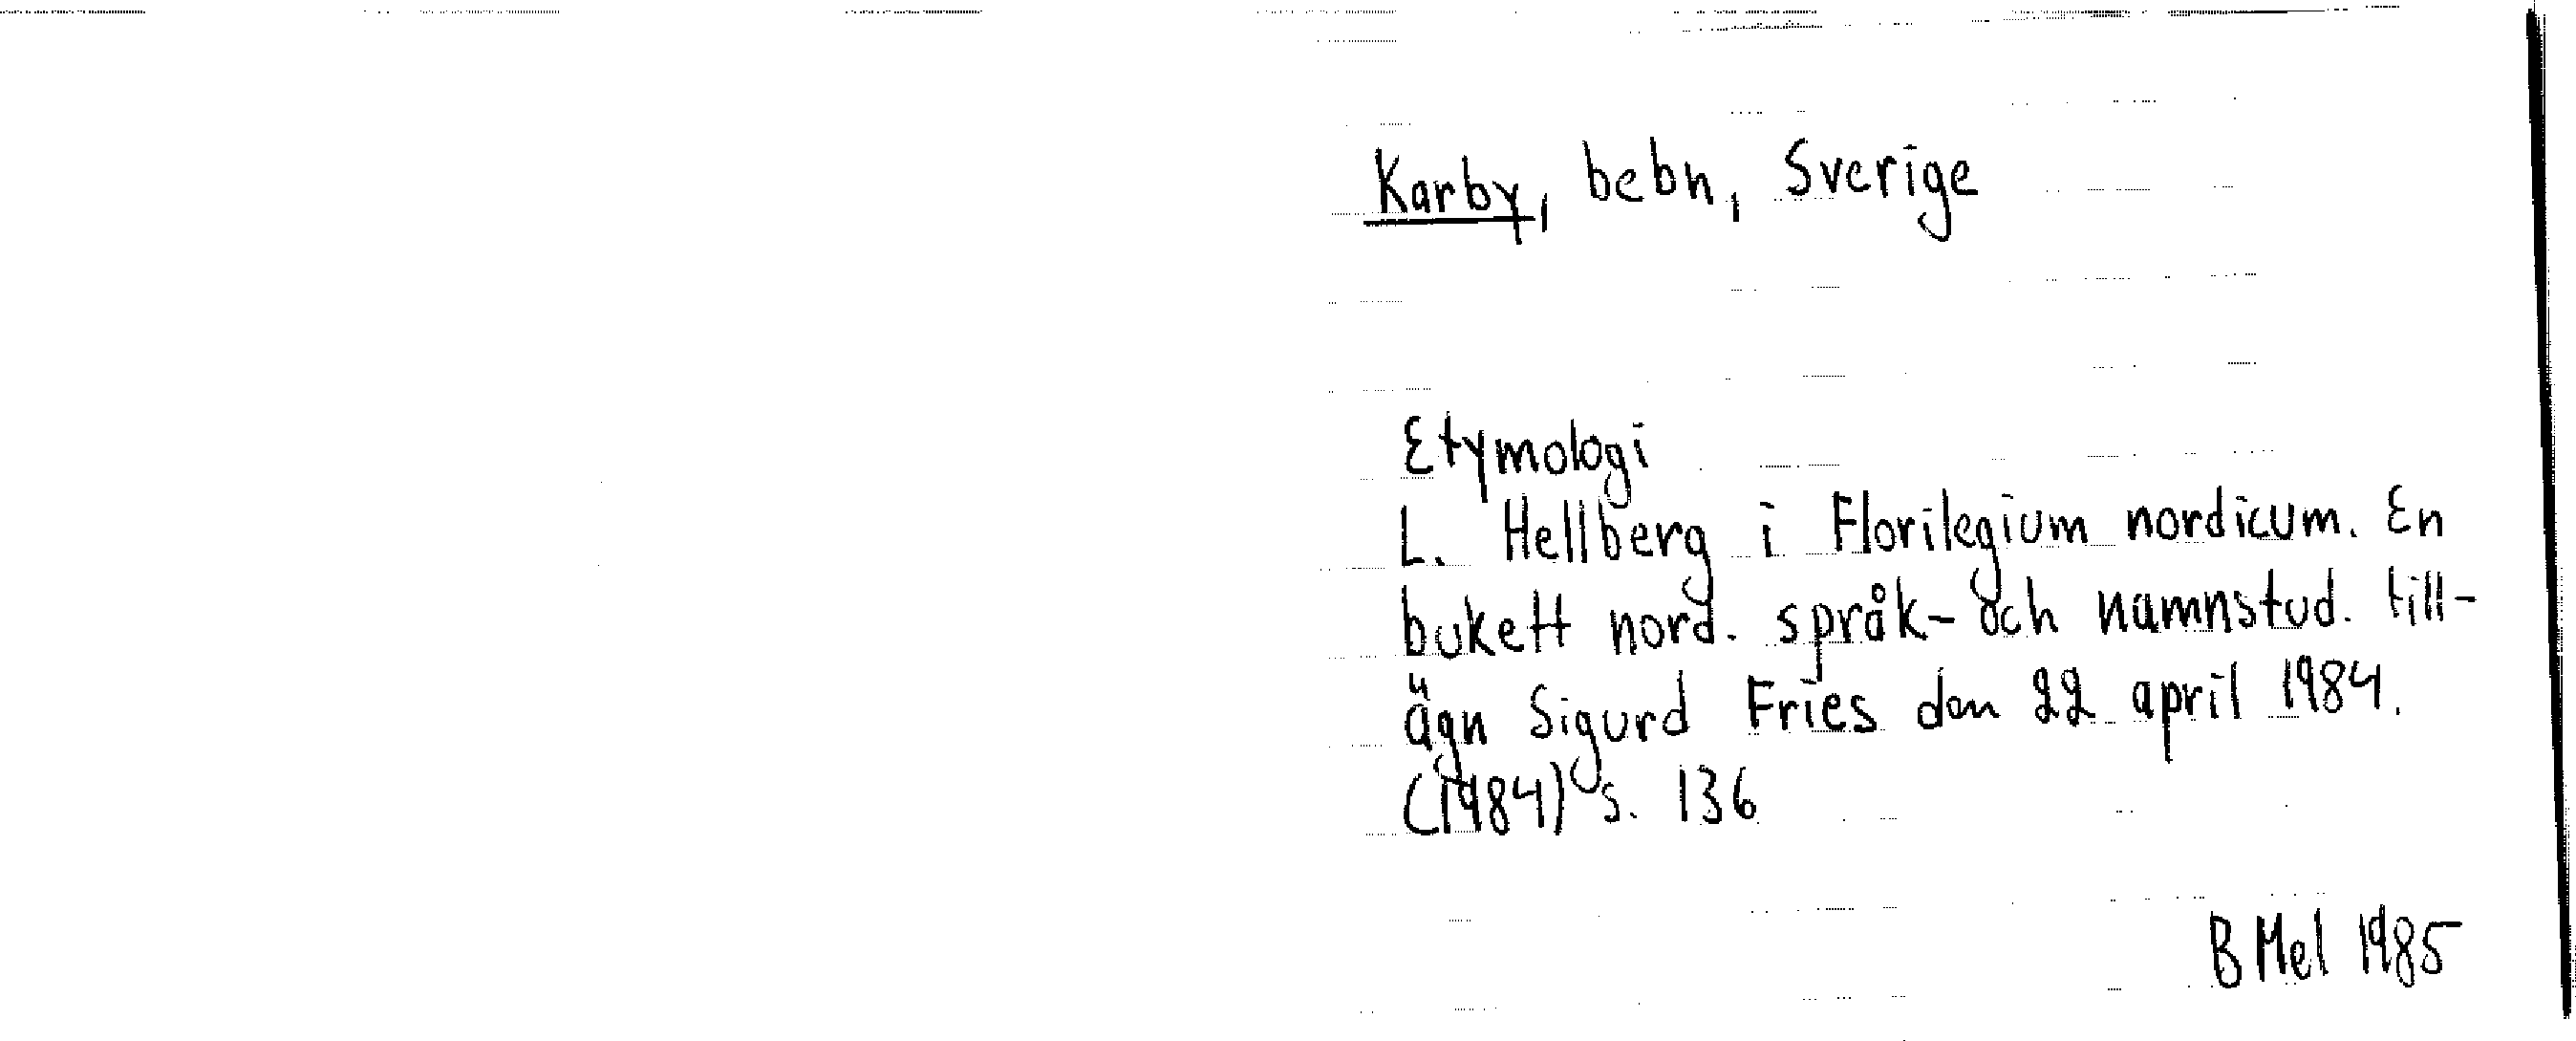 Karby, bebn, Sverige
Etymologi
L. Hellberg i Florilegium nordicum. En
bukett nord. språk- och namnstud. till-
ägn Sigurd Fries den 22 april 1984.
(1984) s. 136
B Mel 1985